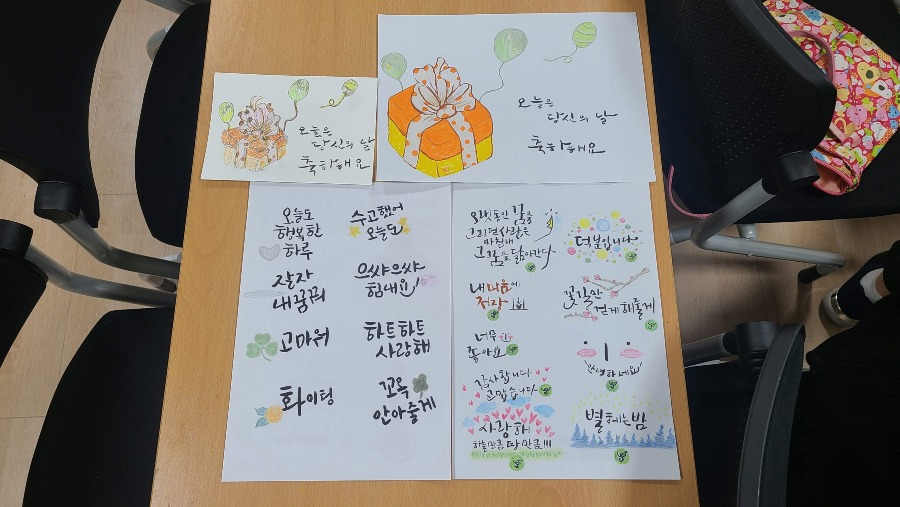 오늘은
당신의 날
축하해요
오늘은
당신의 날
축하해요
오늘도
행복한
하루
수고했어
오늘도
잘자
내꿈꿔
으쌰으쌰
힘내요!
고마워
하트하트
사랑해
화이팅
꼬옥
안아줄게
오랫동안 꿈을
그리면 사람은
마침내
그 꿈을 닮아간다
더봄입니다
내 마음에
저장
꽃길만
걷게 해줄게
너무
좋아요
안녕하세요
감사합니다
고맙습니다
사랑해
하늘만큼 땅만큼!!!
별 헤는 밤